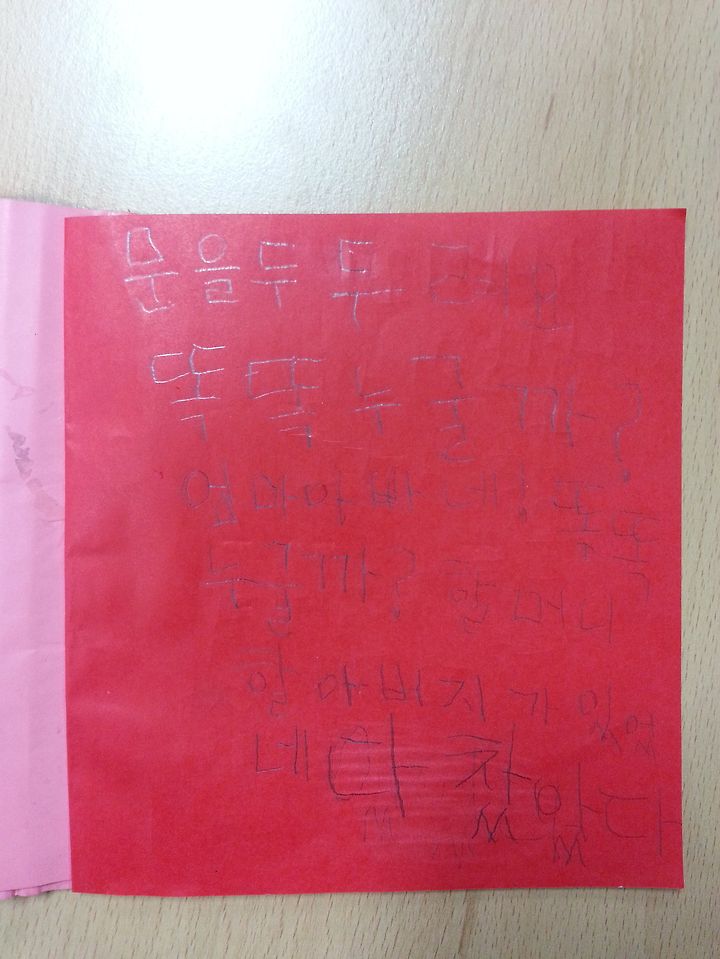 문을두두려요
똑똑누굴까?
엄마아빠네! 똥똑
누굴까? 할머니
할아버지가있었
네 다찾았다